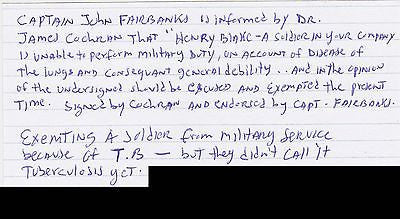 CAPTAIN JOHN FAIRBANKS is informed by DR.
JAMES COCHRAN THAT "HENRY BLAKE - A SOLDIER IN YOUR COMPANY
is UNABLE to perform military DUTY, ON ACCOUNT OF DISEASE OF
the lungs AND CONSEQUANT general debility .. And in the opinion
of the undersigned should be EXCUSED AND EXEMPTED the present
Time. Signed by Cochran AND endorsed by CAPT. FAIRBANKS.
EXEMTING A SOLDIER from military SERVICE
because of T.B - but they didn't CALL it
Tuberculosis yet.